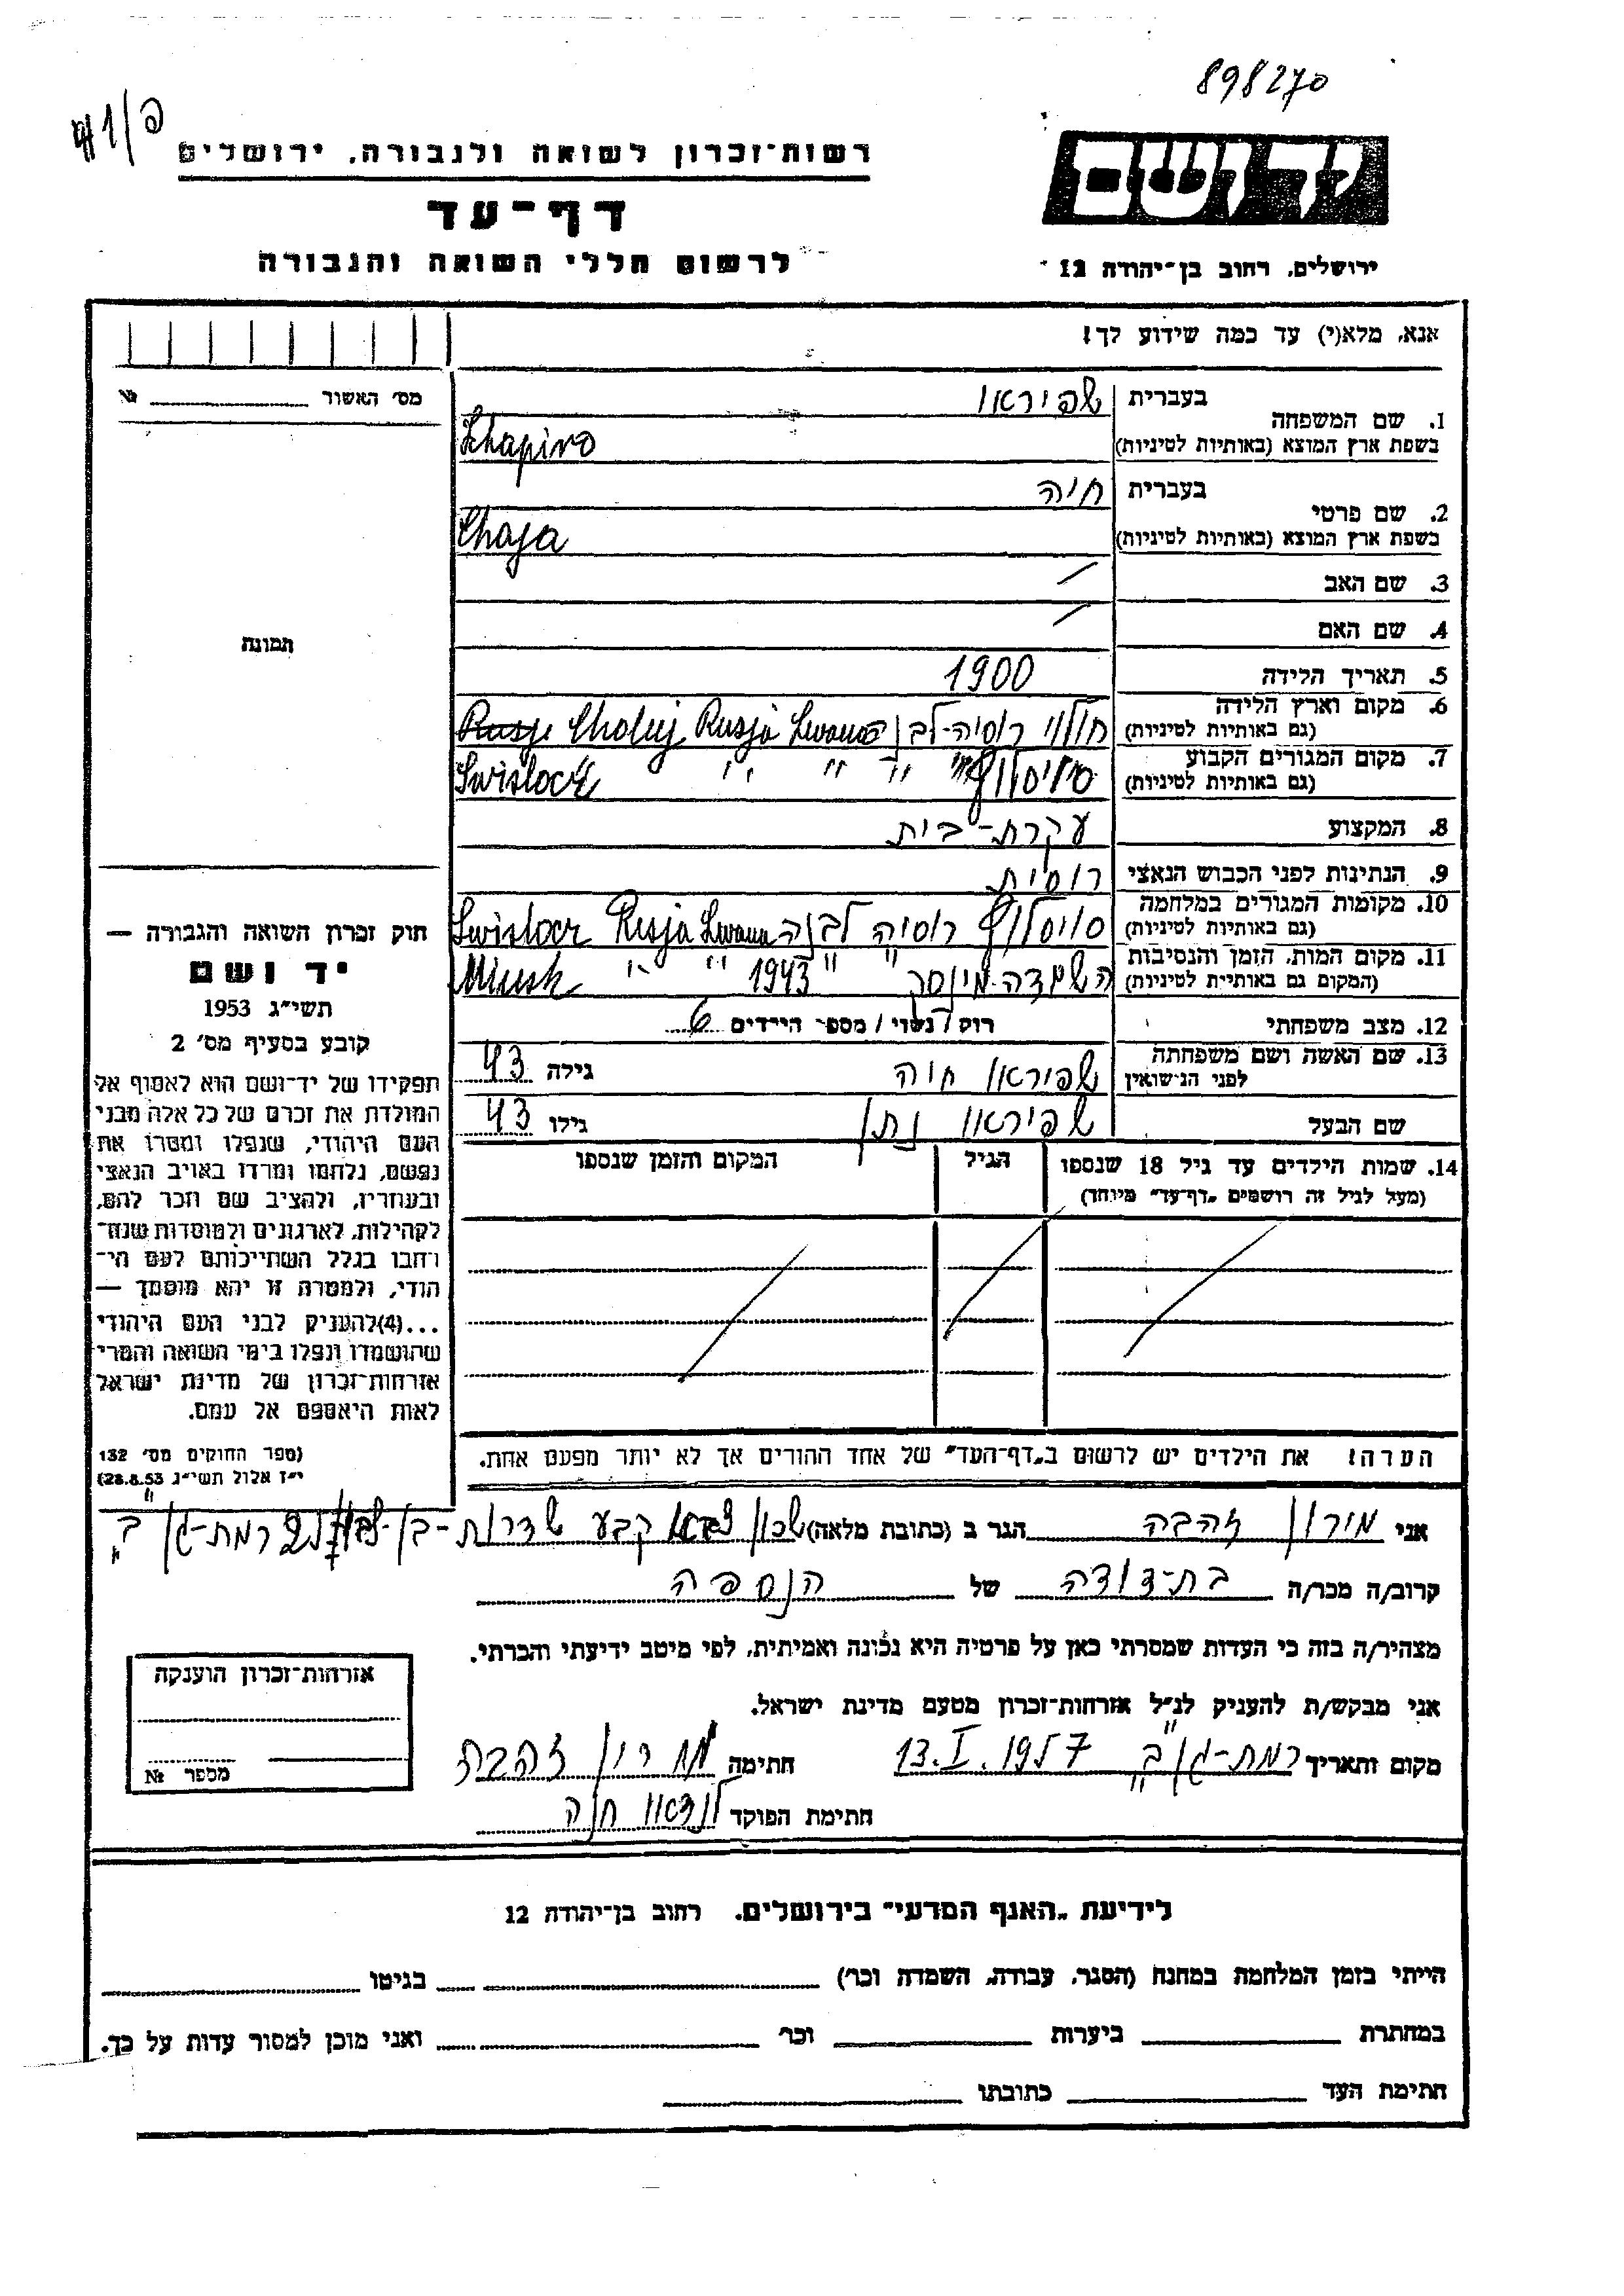 898270
רשות־זכרון לשואה ולגבורה, ירושלים
יד ושם
דף־עד
לרשום חללי השואה והגבורה
ירושלים, רחוב בן־יהודה 12
אנא, מלא(י) עד כמה שידוע לך!
מס׳ האשור № 
בעברית שפיראו
1. שם המשפחה
בשפת ארץ המוצא (באותיות לטיניות) Schapiro
בעברית חיה
2. שם פרטי
בשפת ארץ המוצא (באותיות לטיניות) Chaja
3. שם האב /
4. שם האם /
תמונה
5. תאריך הלידה 1900
6. מקום וארץ הלידה
(גם באותיות לטיניות) רוסיה-לבנה Choluj Rusja Lwana
7. מקום המגורים הקבוע
(גם באותיות לטיניות) סויסלוץ " " " " Swislocz
8. המקצוע עקרת-בית
9. הנתינות לפני הכבוש הנאצי רוסית
10. מקומות המגורים במלחמה
(גם באותיות לטיניות) סויסלוץ רוסיה לבנה Swislocz Rusja Lwana
11. מקום המות, הזמן והנסיבות
(המקום גם באותיות לטיניות) השמדה-מינסק " 1943 " " Minsk
12. מצב משפחתי רוק/נשוי/מספר הילדים 6
13. שם האשה ושם משפחתה
לפני הנישואין שפיראו חיה גילה 43
שם הבעל שפיראו נתן גילו 43
14. שמות הילדים עד גיל 18 שנספו הגיל המקום והזמן שנספו
(מעל לגיל זה רושמים „דף־עד” מיוחד)
הערה! את הילדים יש לרשום ב„דף־העד” של אחד ההורים אך לא יותר מפעם אחת.
חוק זכרון השואה והגבורה —
יד ושם
תשי״ג 1953
קובע בסעיף מס׳ 2
תפקידו של יד־ושם הוא לאסוף אל
המולדת את זכרם של כל אלה מבני
העם היהודי, שנפלו ומסרו את
נפשם, נלחמו ומרדו באויב הנאצי
ובעוזריו, ולהציב שם וזכר להם,
לקהילות, לארגונים ולמוסדות שנח־
רבו בגלל השתייכותם לעם הי־
הודי, ולמטרה זו יהא מוסמך —
...(4)להעניק לבני העם היהודי
שהושמדו ונפלו בימי השואה והמרי
אזרחות־זכרון של מדינת ישראל
לאות היאספם אל עמם.
(ספר החוקים מס׳ 132
י״ז אלול תשי״ג 28.8.53)
אני מירון זהבה הגר ב (כתובת מלאה) שכון צבא קבע שדרות-בן- רמת-גן "ב"
קרוב/ה מכר/ה בת-דודה של הנספה
מצהיר/ה בזה כי העדות שמסרתי כאן על פרטיה היא נכונה ואמיתית, לפי מיטב ידיעתי והכרתי.
אני מבקש/ת להעניק לנ״ל אזרחות־זכרון מטעם מדינת ישראל.
מקום ותאריך רמת-גן "ב" 13.I.1957 חתימה מירון זהבה
חתימת הפוקד לנדאו חנה
אזרחות־זכרון הוענקה
מספר №
לידיעת „האגף המדעי” בירושלים, רחוב בן־יהודה 12
הייתי בזמן המלחמה במחנה (הסגר, עבודה, השמדה וכר׳) בגיטו
במחתרת ביערות וכר׳ ואני מוכן למסור עדות על כך.
חתימת העד כתובתו